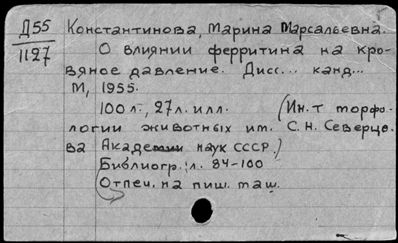 Д55
1127
Константинова, Марина Марсальевна.
О влиянии ферритина на кро-
вяное давление. Дисс... канд...
М, 1955.
100 л., 27 л. илл. (Ин.т торфо-
логии животных им. С.Н. Северцо-
ва Академии наук СССР.)
Библиогр.: л. 84-100
Отпеч. на пиш. маш.